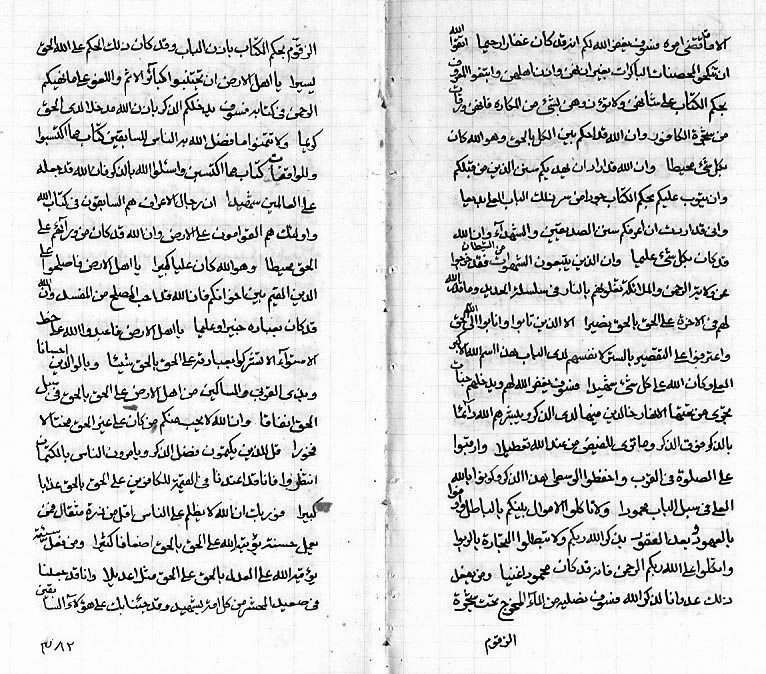 الا ما قد قضی امره و سوف يغفر الله لكم انه قد كان غفارا رحيما اتقوا الله
ان تنكحوا المحصنات الباكرات بغير اذنهن واذن اهلهن وابتغوا المعروف
بحكم الكتاب على شأنهن ولا تؤتوهن شئ من المكاره فانهن ورقات
من شجرة الكافور وان الله قد احكم بين الكل بالحق وهو الله كان
بكل شئ محيطا وان الله قد اراد ان يهديكم سنن الذين من قبلكم
وان يتوب عليكم بحكم الكتاب حورا من سر ذلك الباب
وانى قد اردت ان اعرفكم سنن الصديقين والشهدآء وان الله
قد كان بكل شئ عليما وان الذين يتبعون الشهوات من الشيطان فقد خرجوا
عن ولاية الرحمن والملائكة بالنار فى سلسلة الحديد وما قد الله
لهم فى الاخرة على الحق بالحق نصيرا الا الذين تابوا وانابوا الى الحق
واعترفوا على التقصير بالستر لانفسهم لدى الباب هذا اسم الله الاكبر
العلى وكان الله على كل شئ شهيدا فسوف يغفر الله لهم ويدخلهم جنات
تجرى من تحتها الانهار خالدين فيها لدى الذكر ويبشرهم الله دآئما
بالذكر فوق الذكر وما ترى للفيض من عند الله تعطيلا وارقبوا
على الصلوة فى القرب واحفظوا الوسطى هذا الذكر وكونوا بالله
العلى فى سبل الباب محمودا ولا تاكلوا الاموال بينكم بالباطل
بالعهود وبعد العقود بذكر الله ربكم ولا تبطلوا التجارة بالربوا
واتكلوا على الله ربكم الرحمن فانه قد كان محمودا غنيا ومن يفعل
ذلك عدوانا لذكر الله فسوف نصليه من المآء المخرج تحت شجرة
الزقوم
الزقوم بحكم الكتاب باذن الباب وقد كان ذلك الحكم على الله الحق
يسيرا يا اهل الارض ان تجتنبوا كبآئر الاثم واللغو على ما نهيكم
الرحمن فى كتابه فسوف يدخلكم الذكر باذن الله مدخلا لدى الحق
كريما ولا تتمنوا ما فضل الله به الناس للسابقين كتاب مما اكتسبوا
وللواقفات كتاب مما اكتسبن واسئلوا الله بالذكر فان الله قد جعله
على العالمين شهيدا ان رجال الاعراف هم السابقون فى كتاب الله
واولئك هم القوامون على الارض وان الله قد كان من ورآئهم على
الحق محيطا وهو الله كان عليا كبيرا يا اهل الارض فاصلحوا على
الدين القيم بين اخوانكم فان الله قد احب المصلح من المفسد وان الله
قد كان بعباده خبيرا وعليما يا اهل الارض فاعبدوا الله على خط
الاستوآء لا تشركوا بعبادته على الحق بالحق شيئا وبالوالدين احسانا
وبذى القربى والمساكين من اهل الارض على الحق بالحق فى سبل
الحق انفاقا وان الله لا يحب منكم من كان على غير الحق مختالا
فخورا قل للذين يكتمون فضل الذكر ويامرون الناس بالكتمان
انتظروا فانا قد اعتدنا فى القيمة للكافرين على الحق بالحق عذابا
كبيرا فوربك ان الله لا يظلم على الناس اقل من ذرة مثقال فمن
يعمل حسنة يؤتيه الله على الحق بالحق اضعافا كثيرا ومن يفعل سيئة
يؤتيه الله على العدل بالحق على الحق مثلا عديلا وانا قد جعلنا
فى صعيد المحشر من كل امة بشهيد وقد جئنا بك على هؤلاء السابقين
٨٢